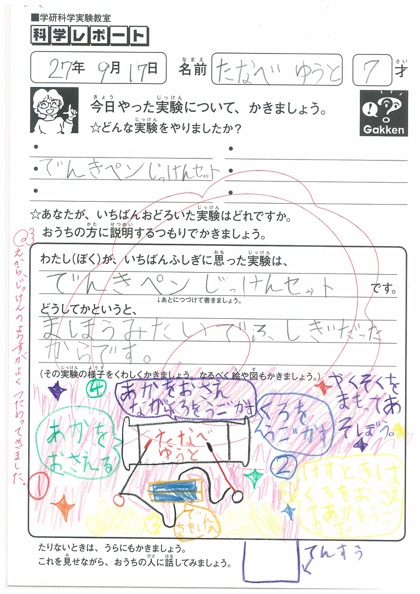 ■学研科学実験教室
科学レポート
27年 9月 17日 名前 たなべ ゆうと 7才
今日やった実験について、かきましょう。
☆どんな実験をやりましたか?
Gakken
でんきペンじっけんセット
☆あなたが、いちばんおどろいた実験はどれですか。
おうちの方に説明するつもりでかきましょう。
わたし(ぼく)が、いちばんふしぎに思った実験は、
でんきペン じっけんセット です。
↓あとにつづけて書きましょう。
どうしてかというと、
まほうみたいで
からです。
(その実験の様子をくわしくかきましょう、なるべく絵や図もかきましょう。)
④
あかをおさえ
ながらくろをうごかす
やくそくを
まもってあ
そぼう。
あかを
おさえる
①
たなべ
ゆうと
くろを
うごかす
②
③
たりないときは、うらにもかきましょう。
これを見せながら、おうちの人に話してみましょう。
てんすう